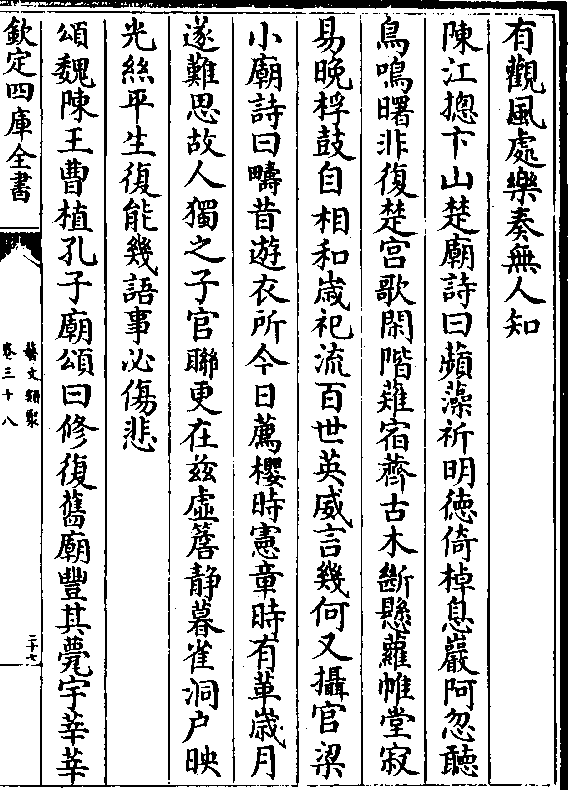 有觀風處樂奏無人知
陳江摠卞山楚廟詩曰蘋藻祈明徳倚棹息巖阿忽聽
鳥鳴曙非復楚宫歌閑階薙宿薺古木斷懸蘿帷堂寂
易晚桴鼓自相和嵗祀流百世英威言幾何又攝官梁
小廟詩曰疇昔遊衣所今日薦櫻時憲章時有革嵗月
遂難思故人獨之子官聨更在兹虚簷静暮雀洞户映
光絲平生復能幾語事必傷悲
頌魏陳王曹植孔子廟頌曰修復舊廟豐其甍宇莘莘
欽定四庫全書
藝文類聚
卷三十八
二十七